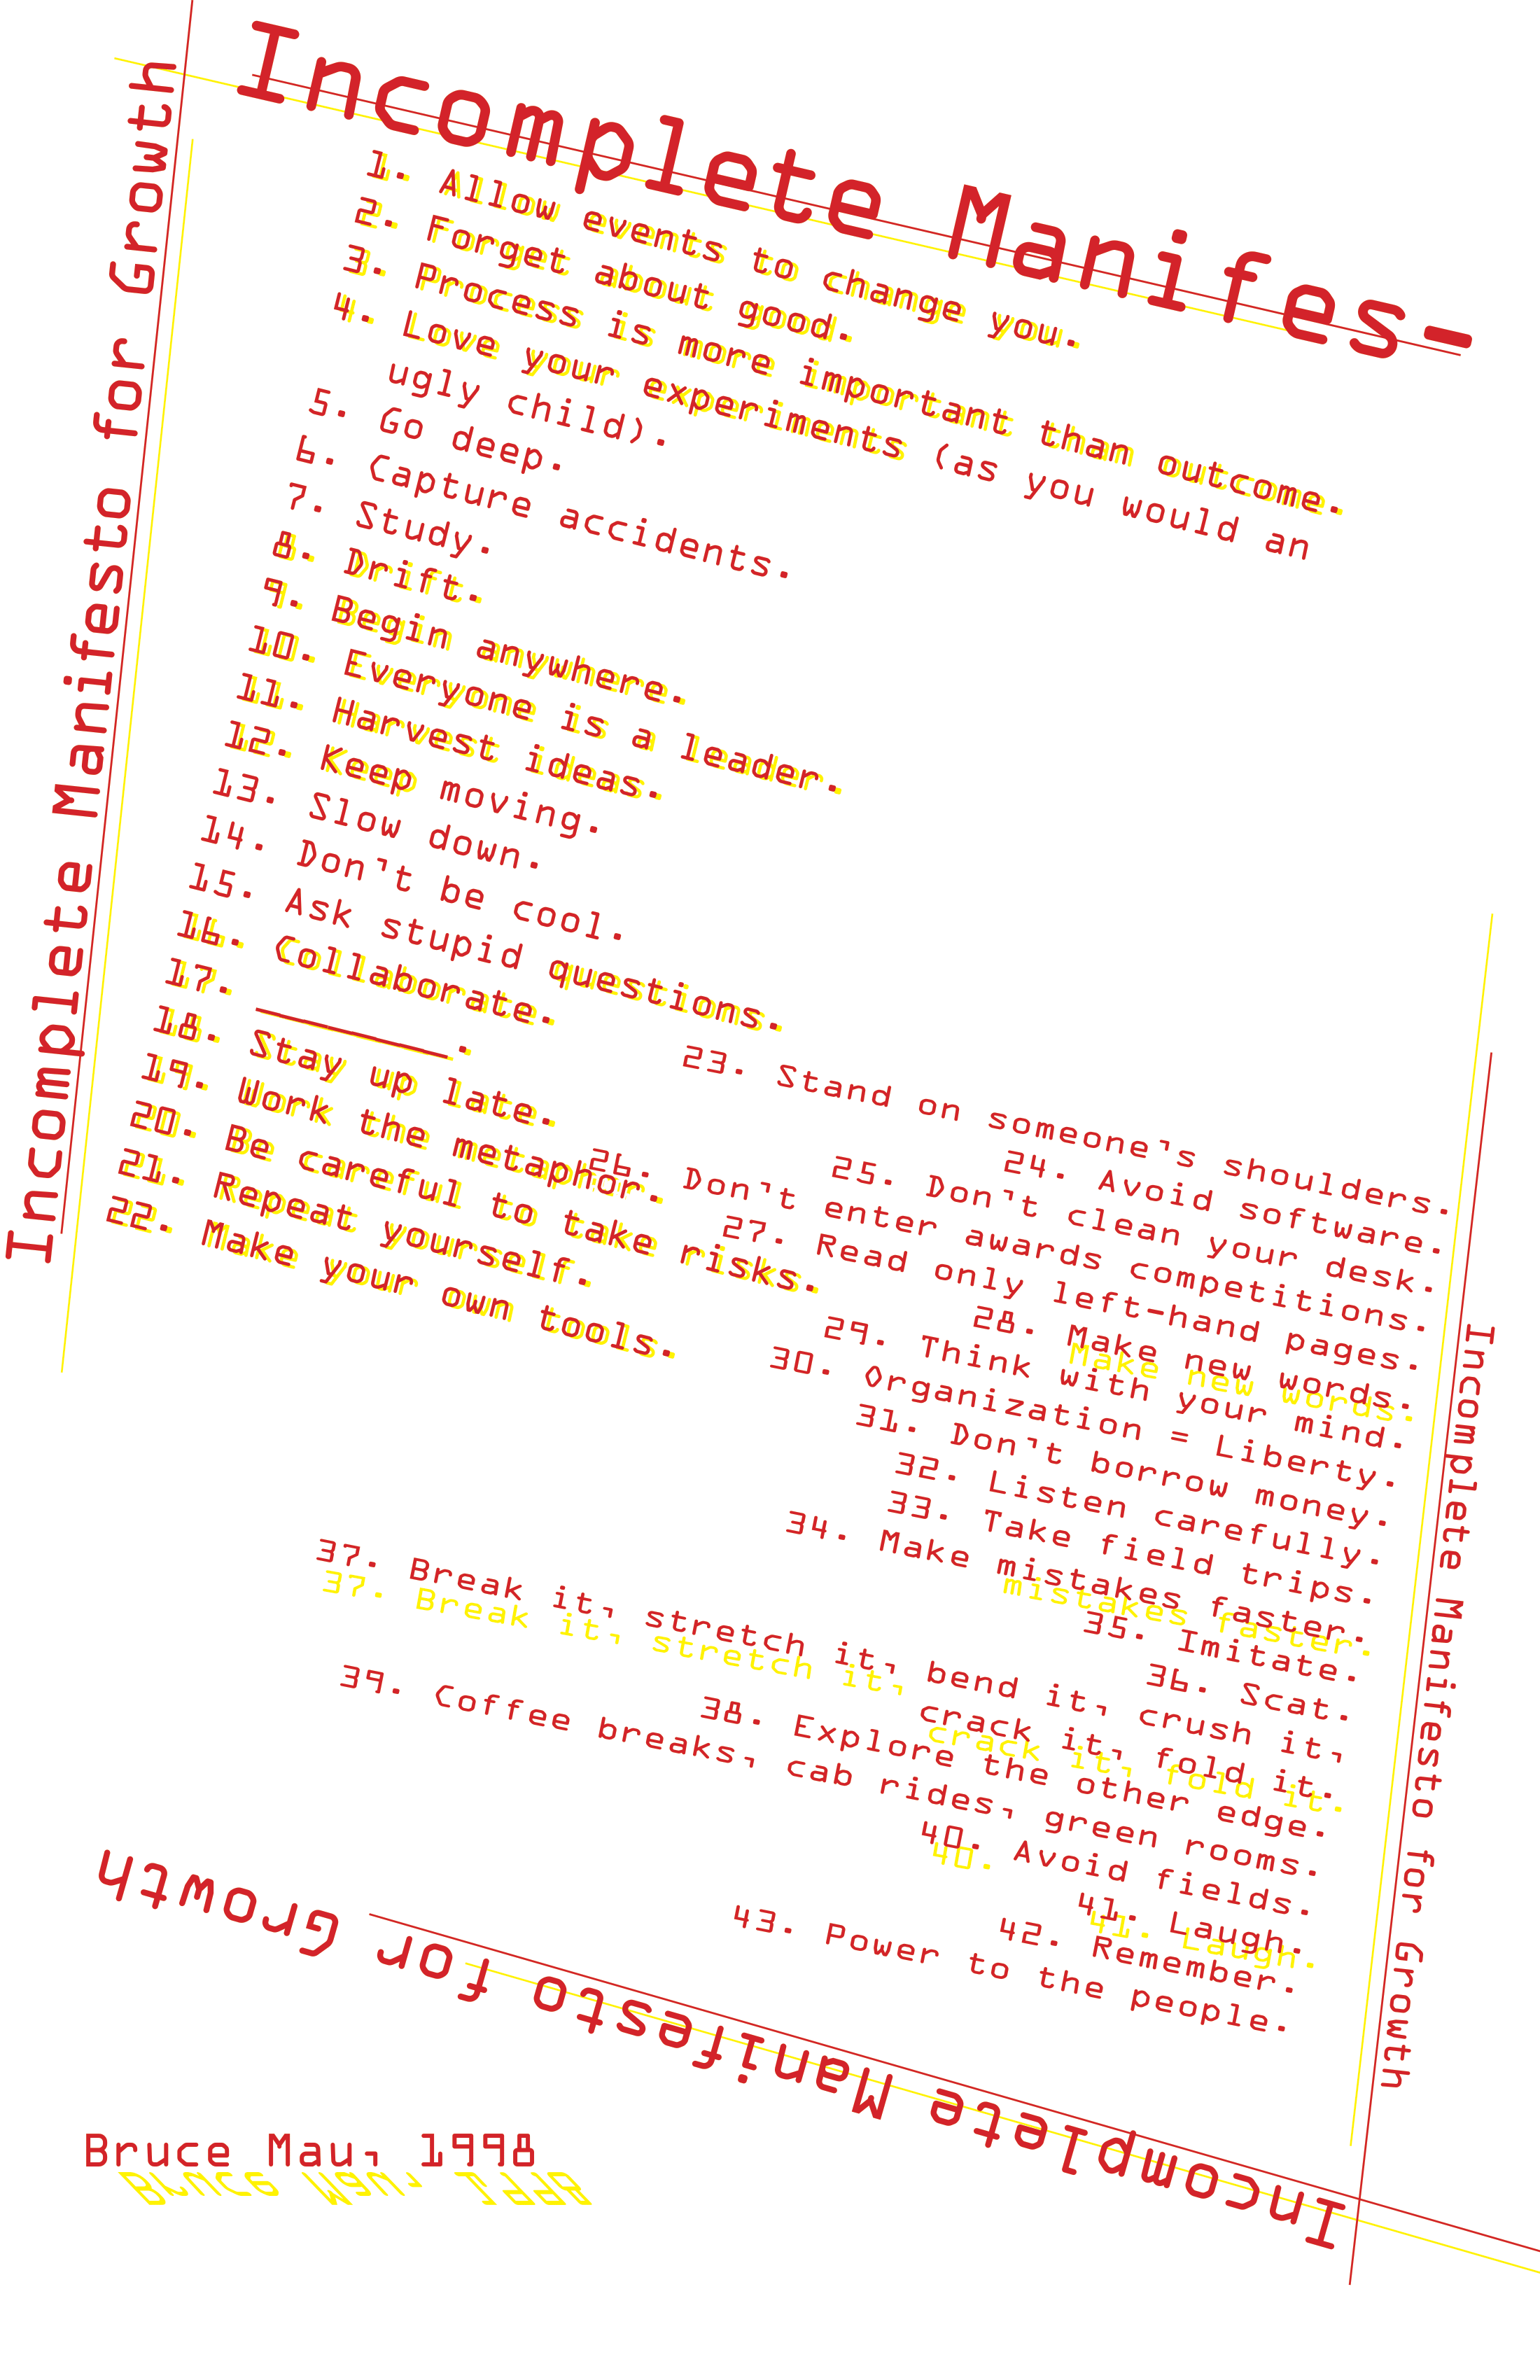 Incomplete Manifes-
Incomplete Manifesto for Growth
1. Allow events to change you.
2. Forget about good.
3. Process is more important than outcome.
4. Love your experiments (as you would an
ugly child).
5. Go deep.
6. Capture accidents.
7. Study.
8. Drift.
9. Begin anywhere.
10. Everyone is a leader.
11. Harvest ideas.
12. Keep moving.
13. Slow down.
14. Don't be cool.
15. Ask stupid questions.
16. Collaborate.
17. ________.
18. Stay up late.
19. Work the metaphor.
20. Be careful to take risks.
21. Repeat yourself.
22. Make your own tools.
23. Stand on someone's shoulders.
24. Avoid software.
25. Don't clean your desk.
26. Don't enter awards competitions.
27. Read only left-hand pages.
28. Make new words.
Make new words.
29. Think with your mind.
30. Organization = Liberty.
31. Don't borrow money.
32. Listen carefully.
33. Take field trips.
34. Make mistakes faster.
mistakes faster.
35. Imitate.
36. Scat.
37. Break it, stretch it, bend it, crush it,
37. Break it, stretch it,
crack it, fold it.
crack it, fold it.
38. Explore the other edge.
39. Coffee breaks, cab rides, green rooms.
40. Avoid fields.
40.
41. Laugh.
41. Laugh.
42. Remember.
43. Power to the people.
Incomplete Manifesto for Growth
Incomplete Manifesto for Growth
Bruce Mau, 1998
Bruce Mau, 1998